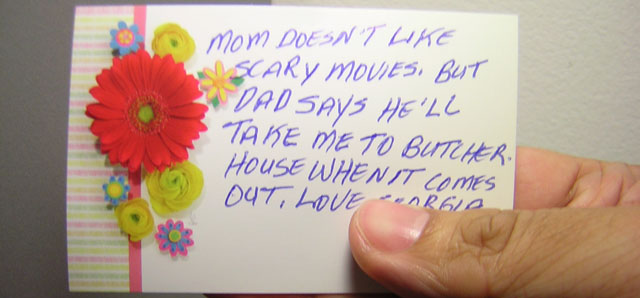 MOM DOESN'T LIKE
SCARY MOVIES. BUT
DAD SAYS HE'LL
TAKE ME TO BUTCHER-
HOUSE WHEN IT COMES
OUT. LOVE GEORGIA